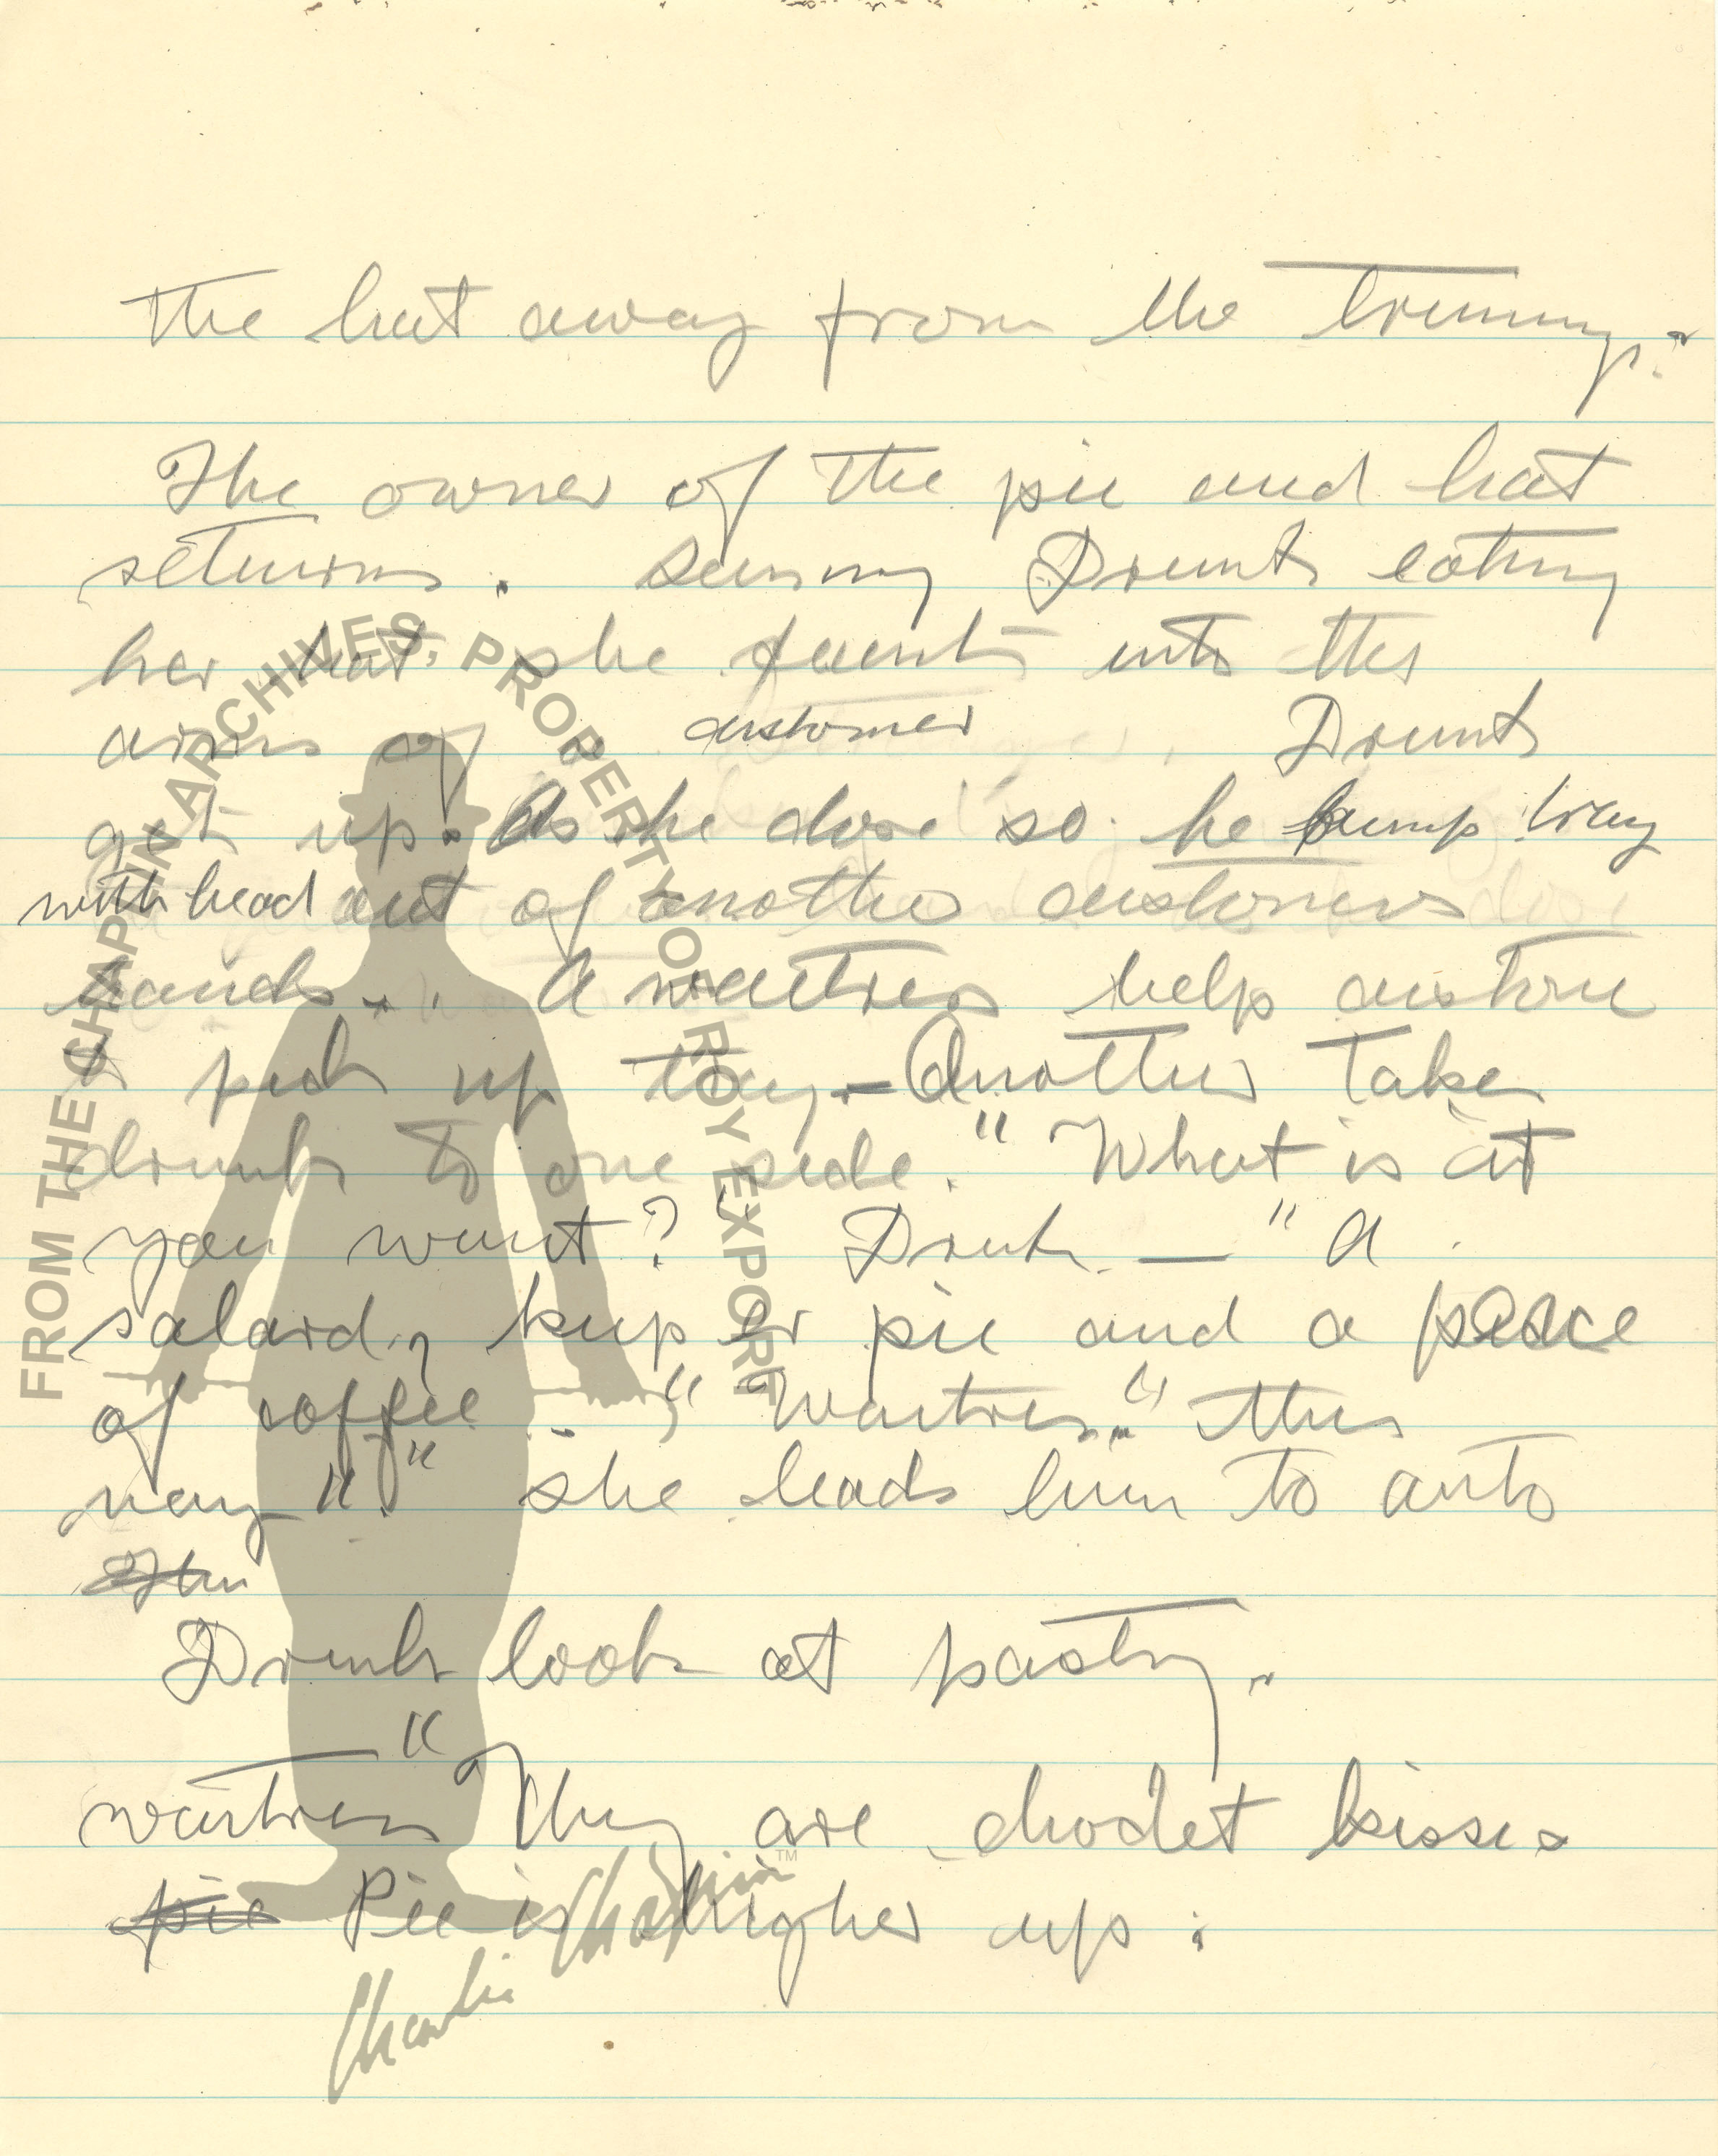 the hat away from the trimmings.
The owner of the pie and hat
returns. Seeing Drunk eating
her hat, she faints into the
arms of a customer Drunk
get up. As he dose so he bump tray
with head out of another customers
hands. A waitress help custome
to pick up tray - Another take
drunk to one side. "What is it
you want?" Drunk - "A
salard, kup er pie and a peice
of coffee." "Waitress." this
way "." She leads him to auto
Drunk look at pastry.
waitress "They are choclet kisses
pie Pie is higher up.
FROM THE CHAPLIN ARCHIVES, PROPERTY OF ROY EXPORT
Charlie Chaplin™